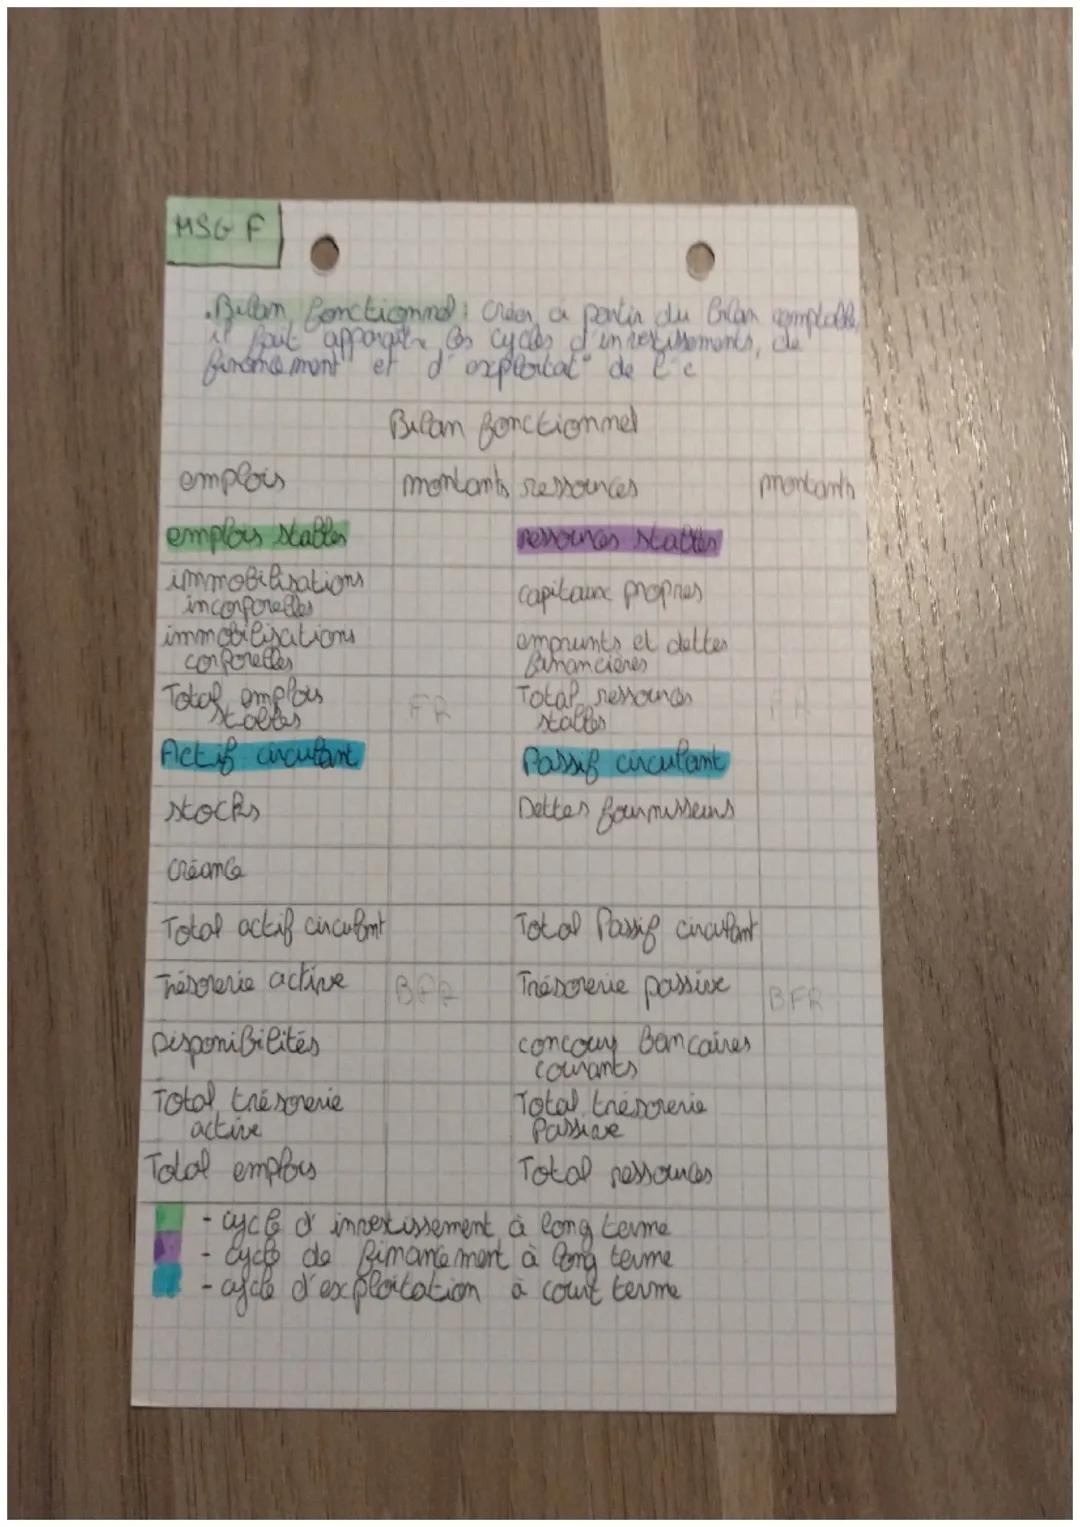 MSG F
.Bilan fonctionnel : créer à partir du bilan comptable,
il fait apparaître les cycles d'investissements, de
financement et d'exploitat° de l'e
Bilan fonctionnel
emplois montants ressources montants
emplois stables ressources stables
immobilisations capitaux propres
incorporelles
immobilisations emprunts et dettes
corporelles financières
Total emplois FR Total ressources FR
stables stables
Actif circulant Passif circulant
stocks Dettes fournisseurs
créance
Total actif circulant Total Passif circulant
Trésorerie active BFR Trésorerie passive BFR
Disponibilités concours bancaires
courants
Total trésorerie Total trésorerie
active Passive
Total emplois Total ressources
- cycle d'investissement à long terme
- cycle de financement à long terme
- cycle d'exploitation à court terme